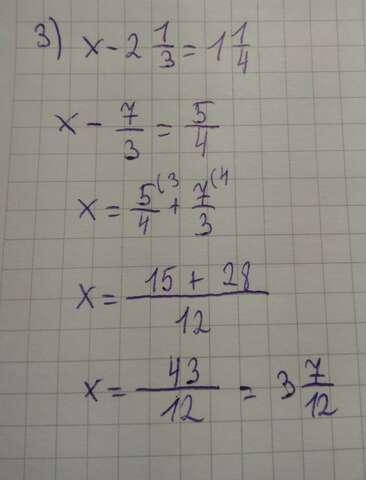 3) x - 2 1/3 = 1 1/4
x - 7/3 = 5/4
x = 5/4 (3 + 7/3 (4
x = 15 + 28 / 12
x = 43/12 = 3 7/12